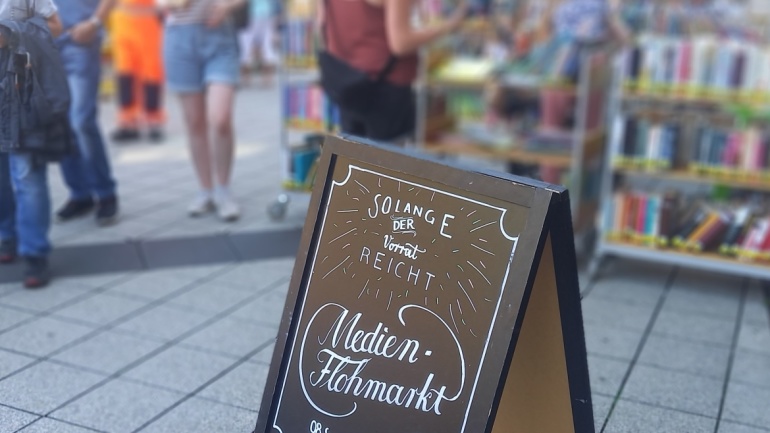 SOLANGE
DER
Vorrat
REICHT
Medien-
Flohmarkt